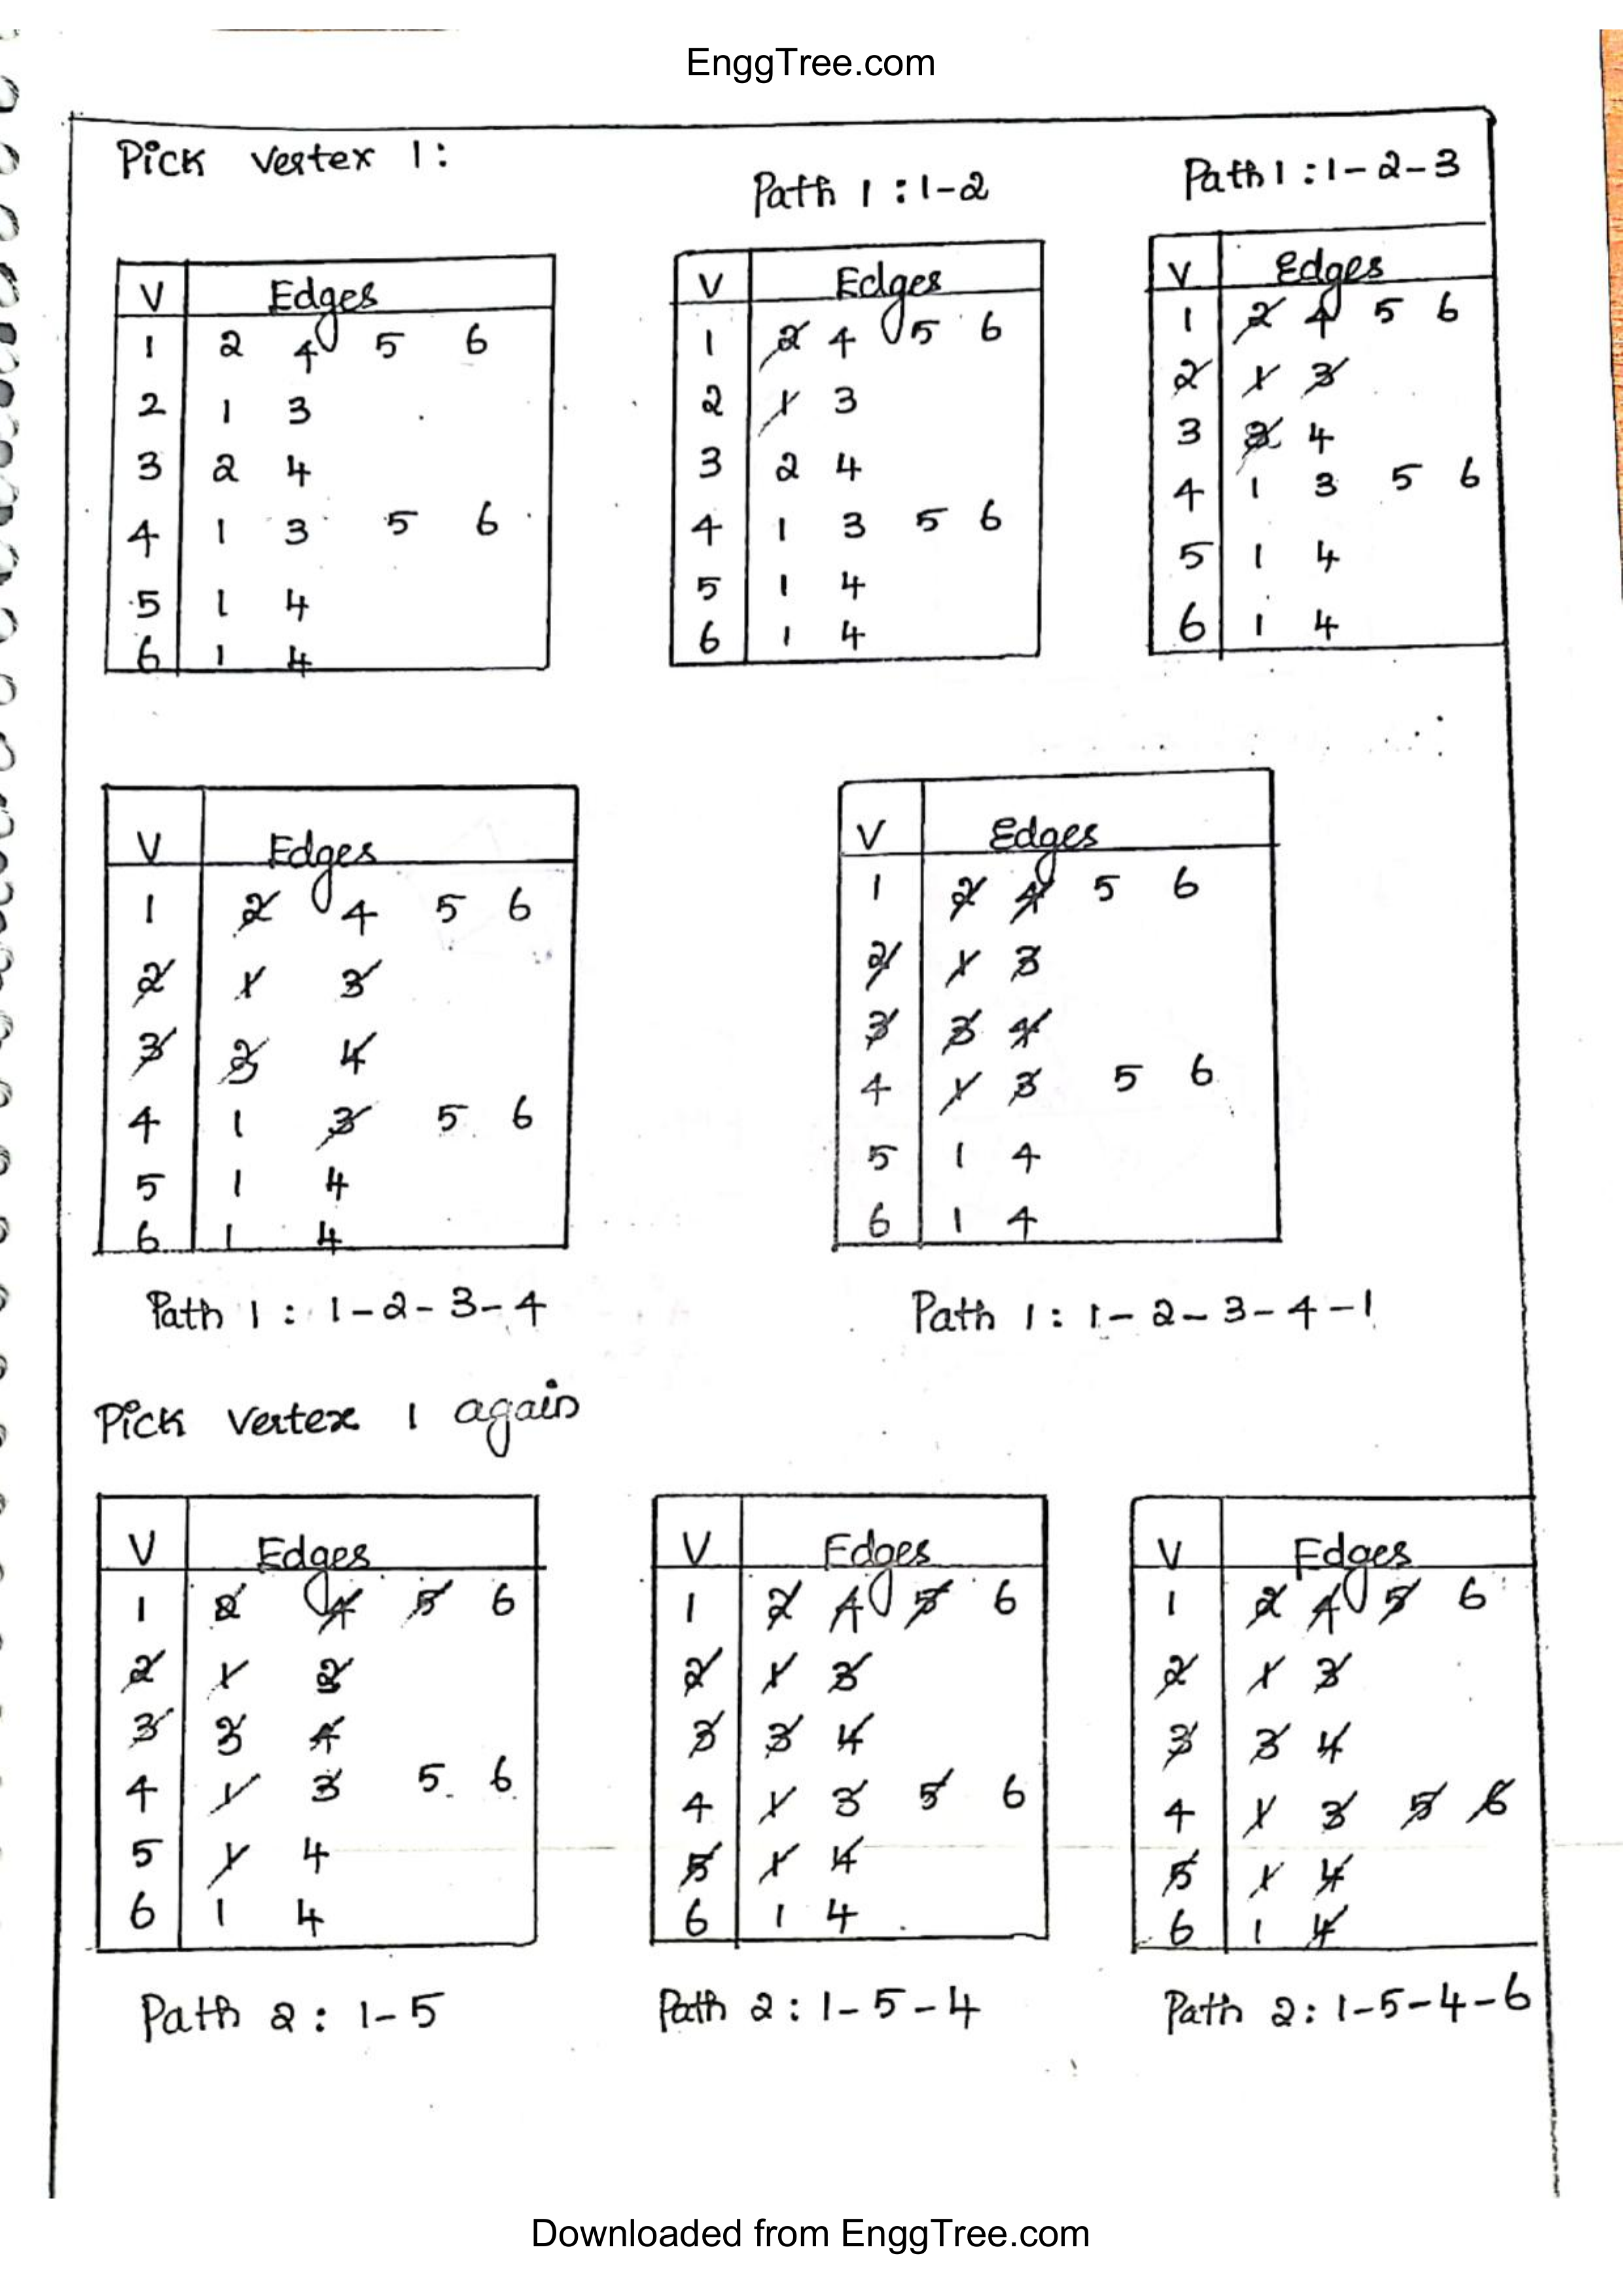 EnggTree.com
Pick vertex 1:
Path 1 : 1-2
Path 1 : 1-2-3
V Edges
1 2 4 5 6
2 1 3
3 2 4
4 1 3 5 6
5 1 4
6 1 4
V Edges
1 2 4 5 6
2 1 3
3 2 4
4 1 3 5 6
5 1 4
6 1 4
V Edges
1 2 4 5 6
2 1 3
3 2 4
4 1 3 5 6
5 1 4
6 1 4
V Edges
1 2 4 5 6
2 1 3
3 2 4
4 1 3 5 6
5 1 4
6 1 4
Path 1 : 1-2-3-4
V Edges
1 2 4 5 6
2 1 3
3 3 4
4 1 3 5 6
5 1 4
6 1 4
Path 1 : 1-2-3-4-1
Pick vertex 1 again
V Edges
1 2 4 5 6
2 1 2
3 3 4
4 1 3 5 6
5 1 4
6 1 4
Path 2 : 1-5
V Edges
1 2 4 5 6
2 1 3
3 3 4
4 1 3 5 6
5 1 4
6 1 4
Path 2 : 1-5-4
V Edges
1 2 4 5 6
2 1 3
3 3 4
4 1 3 5 6
5 1 4
6 1 4
Path 2 : 1-5-4-6
Downloaded from EnggTree.com